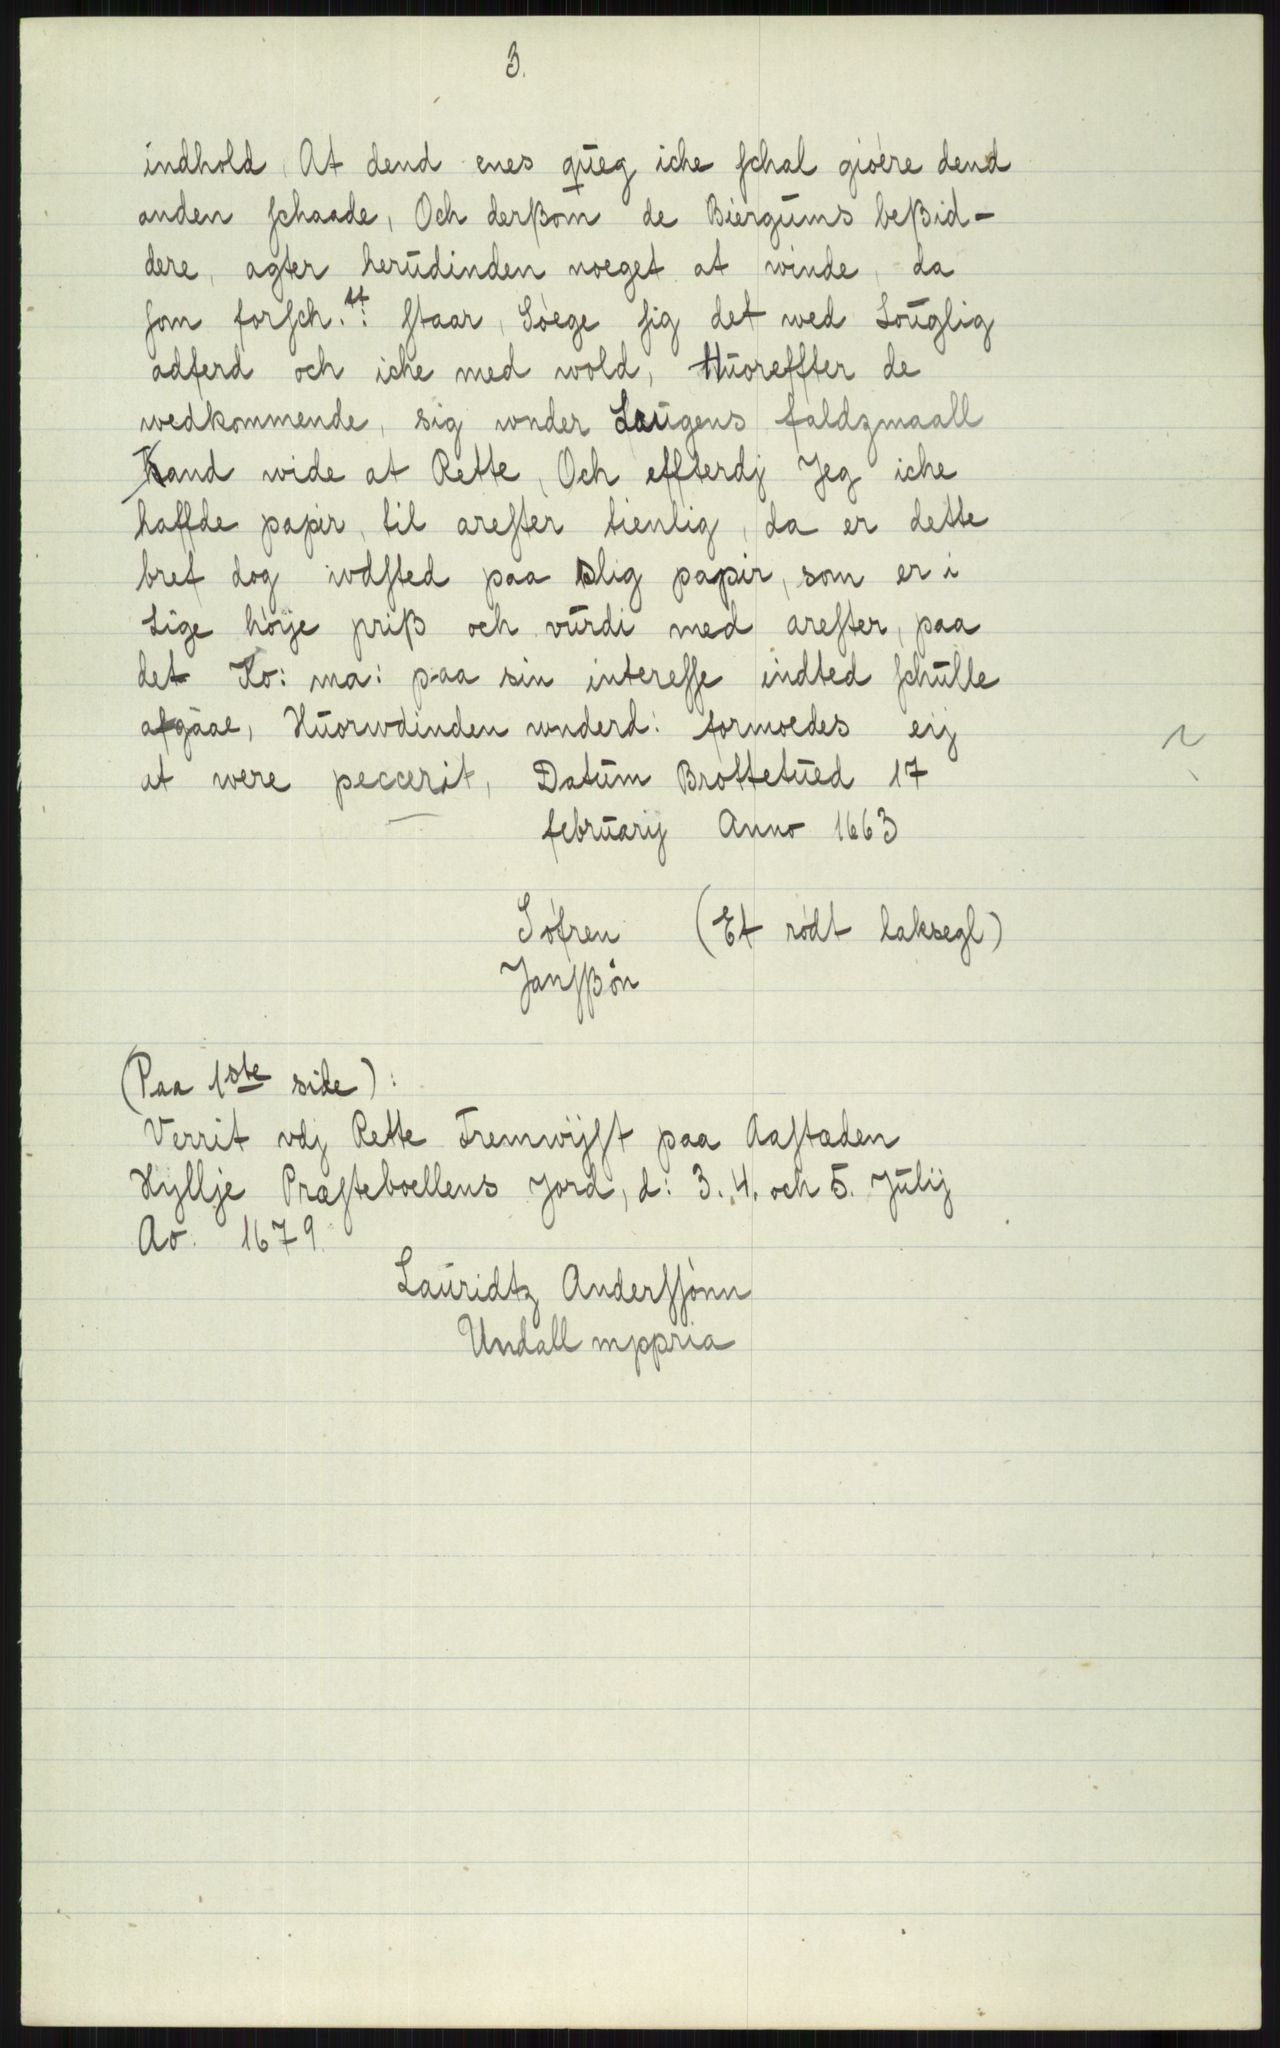 3.
indhold, At dend enes qūeg iche ſchal gioére dend
anden ſchaade, Och derßom de Biergūms beßid-
dere, agter herūdinden noeget at winde, da
ſom forſch.tt: ſtaar, Sóege ſig det wed Loūglig
adferd och iche med wold, Hūoreffter de
wedkommende, sig wnder Laūgens faldzmaall
Kand wide at Rette, Och effterdj Jeg iche
haffde papir, til areſter tienlig, da er dette
bref dog wdſted paa slig papir, som er i
Lige hóije priß och vūrdi med areſter, paa
det Ko: ma: paa sin intereſſe indted ſchūlle
afgāae, Hūorwdinden wnderd: formoedes eij
at were peccerit, Datūm Brottetūed 17
febrūarij Anno 1663
Sófren (Et ródt laksegl)
Janſßón
(Paa 1ste side):
Verrit vdj Rette Fremwijſt paa Aaſtaden
Hyllje Præſteboellens Jord, d: 3. 4. och 5. Jūlij
Ao. 1679.
Laūridtz Anderſſónn
Undall mppria